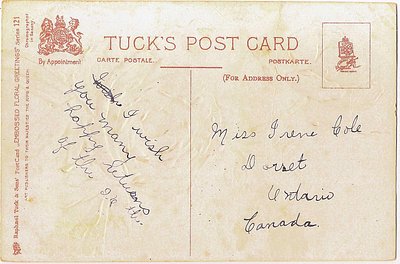 TUCK'S POST CARD
By Appointment
CARTE POSTALE.
POSTKARTE.
(FOR ADDRESS ONLY.)
I wish
you many
happy returns
of the
Miss Irene Cole
Dorset
Ontario
Canada.
Raphael Tuck & Sons' Post Card "EMBOSSED FLORAL GREETINGS" Series 121